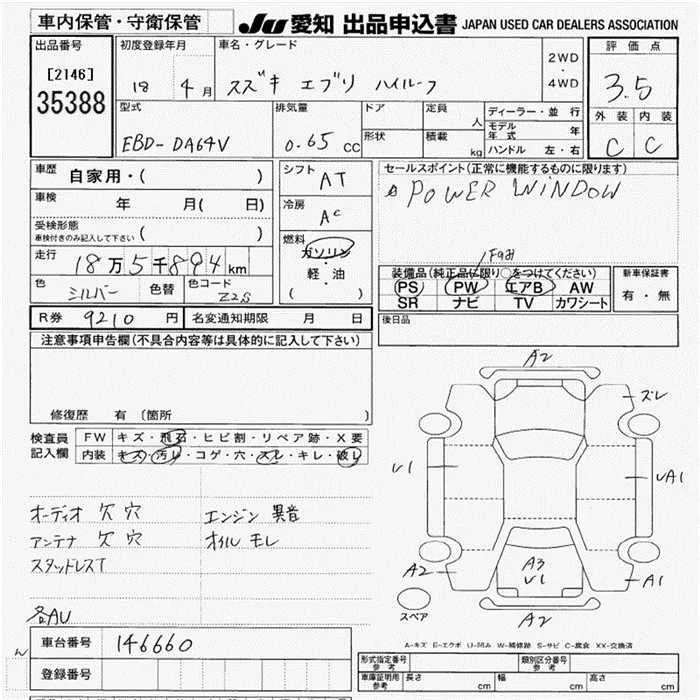 車内保管・守衛保管 JU 愛知 出品申込書 JAPAN USED CAR DEALERS ASSOCIATION
出品番号 初度登録年月 車名・グレード 評価点
[2146] 18 4月 スズキ エブリ ハイルーフ 2WD ・ 4WD 3.5
35388 型式 排気量 ドア 定員 人 ディーラー・並行
モデル年式 年 外装 内装
EBD-DA64V 0.65 CC 形状 積載 kg ハンドル 左・右 C C
車歴 自家用・( ) シフト AT セールスポイント(正常に機能するものに限ります)
車検 年 月( 日) 冷房 AC POWER WINDOW
受検形態
車検付きのみ記入して下さい ( ) 燃料 ガソリン
走行 18万5千894km 軽・油 装備品(純正品に限り○をつけてください) 新車保証書
色 シルバー 色替 色コード Z2S ( ) PS PW エアB AW 有・無
SR ナビ TV カワシート
R券 9210 円 名変通知期限 月 日 後日品
注意事項申告欄(不具合内容等は具体的に記入して下さい)
A2
ズレ
修復歴 有 〔箇所 〕
検査員 FW キズ・飛石・ヒビ割・リペア跡・X要
記入欄 内装 キズ・汚レ・コゲ・穴・スレ・キレ・破レ
U1 UA1
オーディオ 欠 穴 エンジン 異音
アンテナ 欠 穴 オイル モレ
スタッドレスT
A3
U1
A2 A1
スペア
A2
各AU
車台番号 146660
A-キズ E-エクボ U-凹み W-補修跡 S-サビ C-腐食 XX-交換済
登録番号
形式指定番号 参考 類別区分番号 参考
車庫証明用 参考 長さ cm 幅 cm 高さ cm